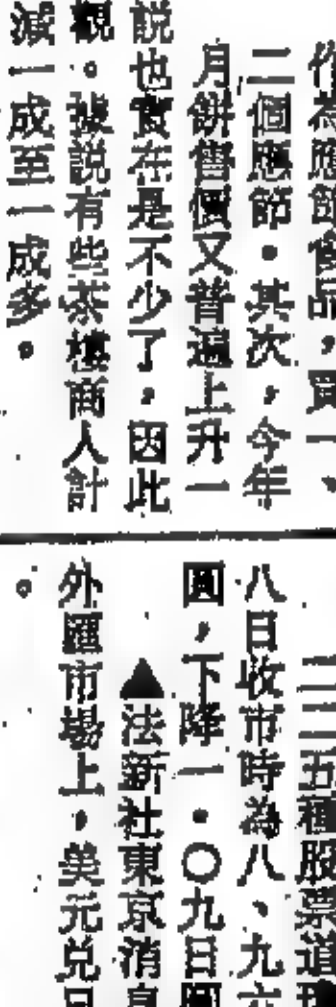 作為應節食品，買一、
二個應節。其次，今年
月餅售價又普遍上升一
説也實在是不少了，因此
觀。據説有些茶樓商人計
減一成至一成多。
二二五種股票道瓊
八日收市時為八、九六
圓，下降一·〇九日圓
▲法新社東京消息
外匯市場上，美元兑日
。